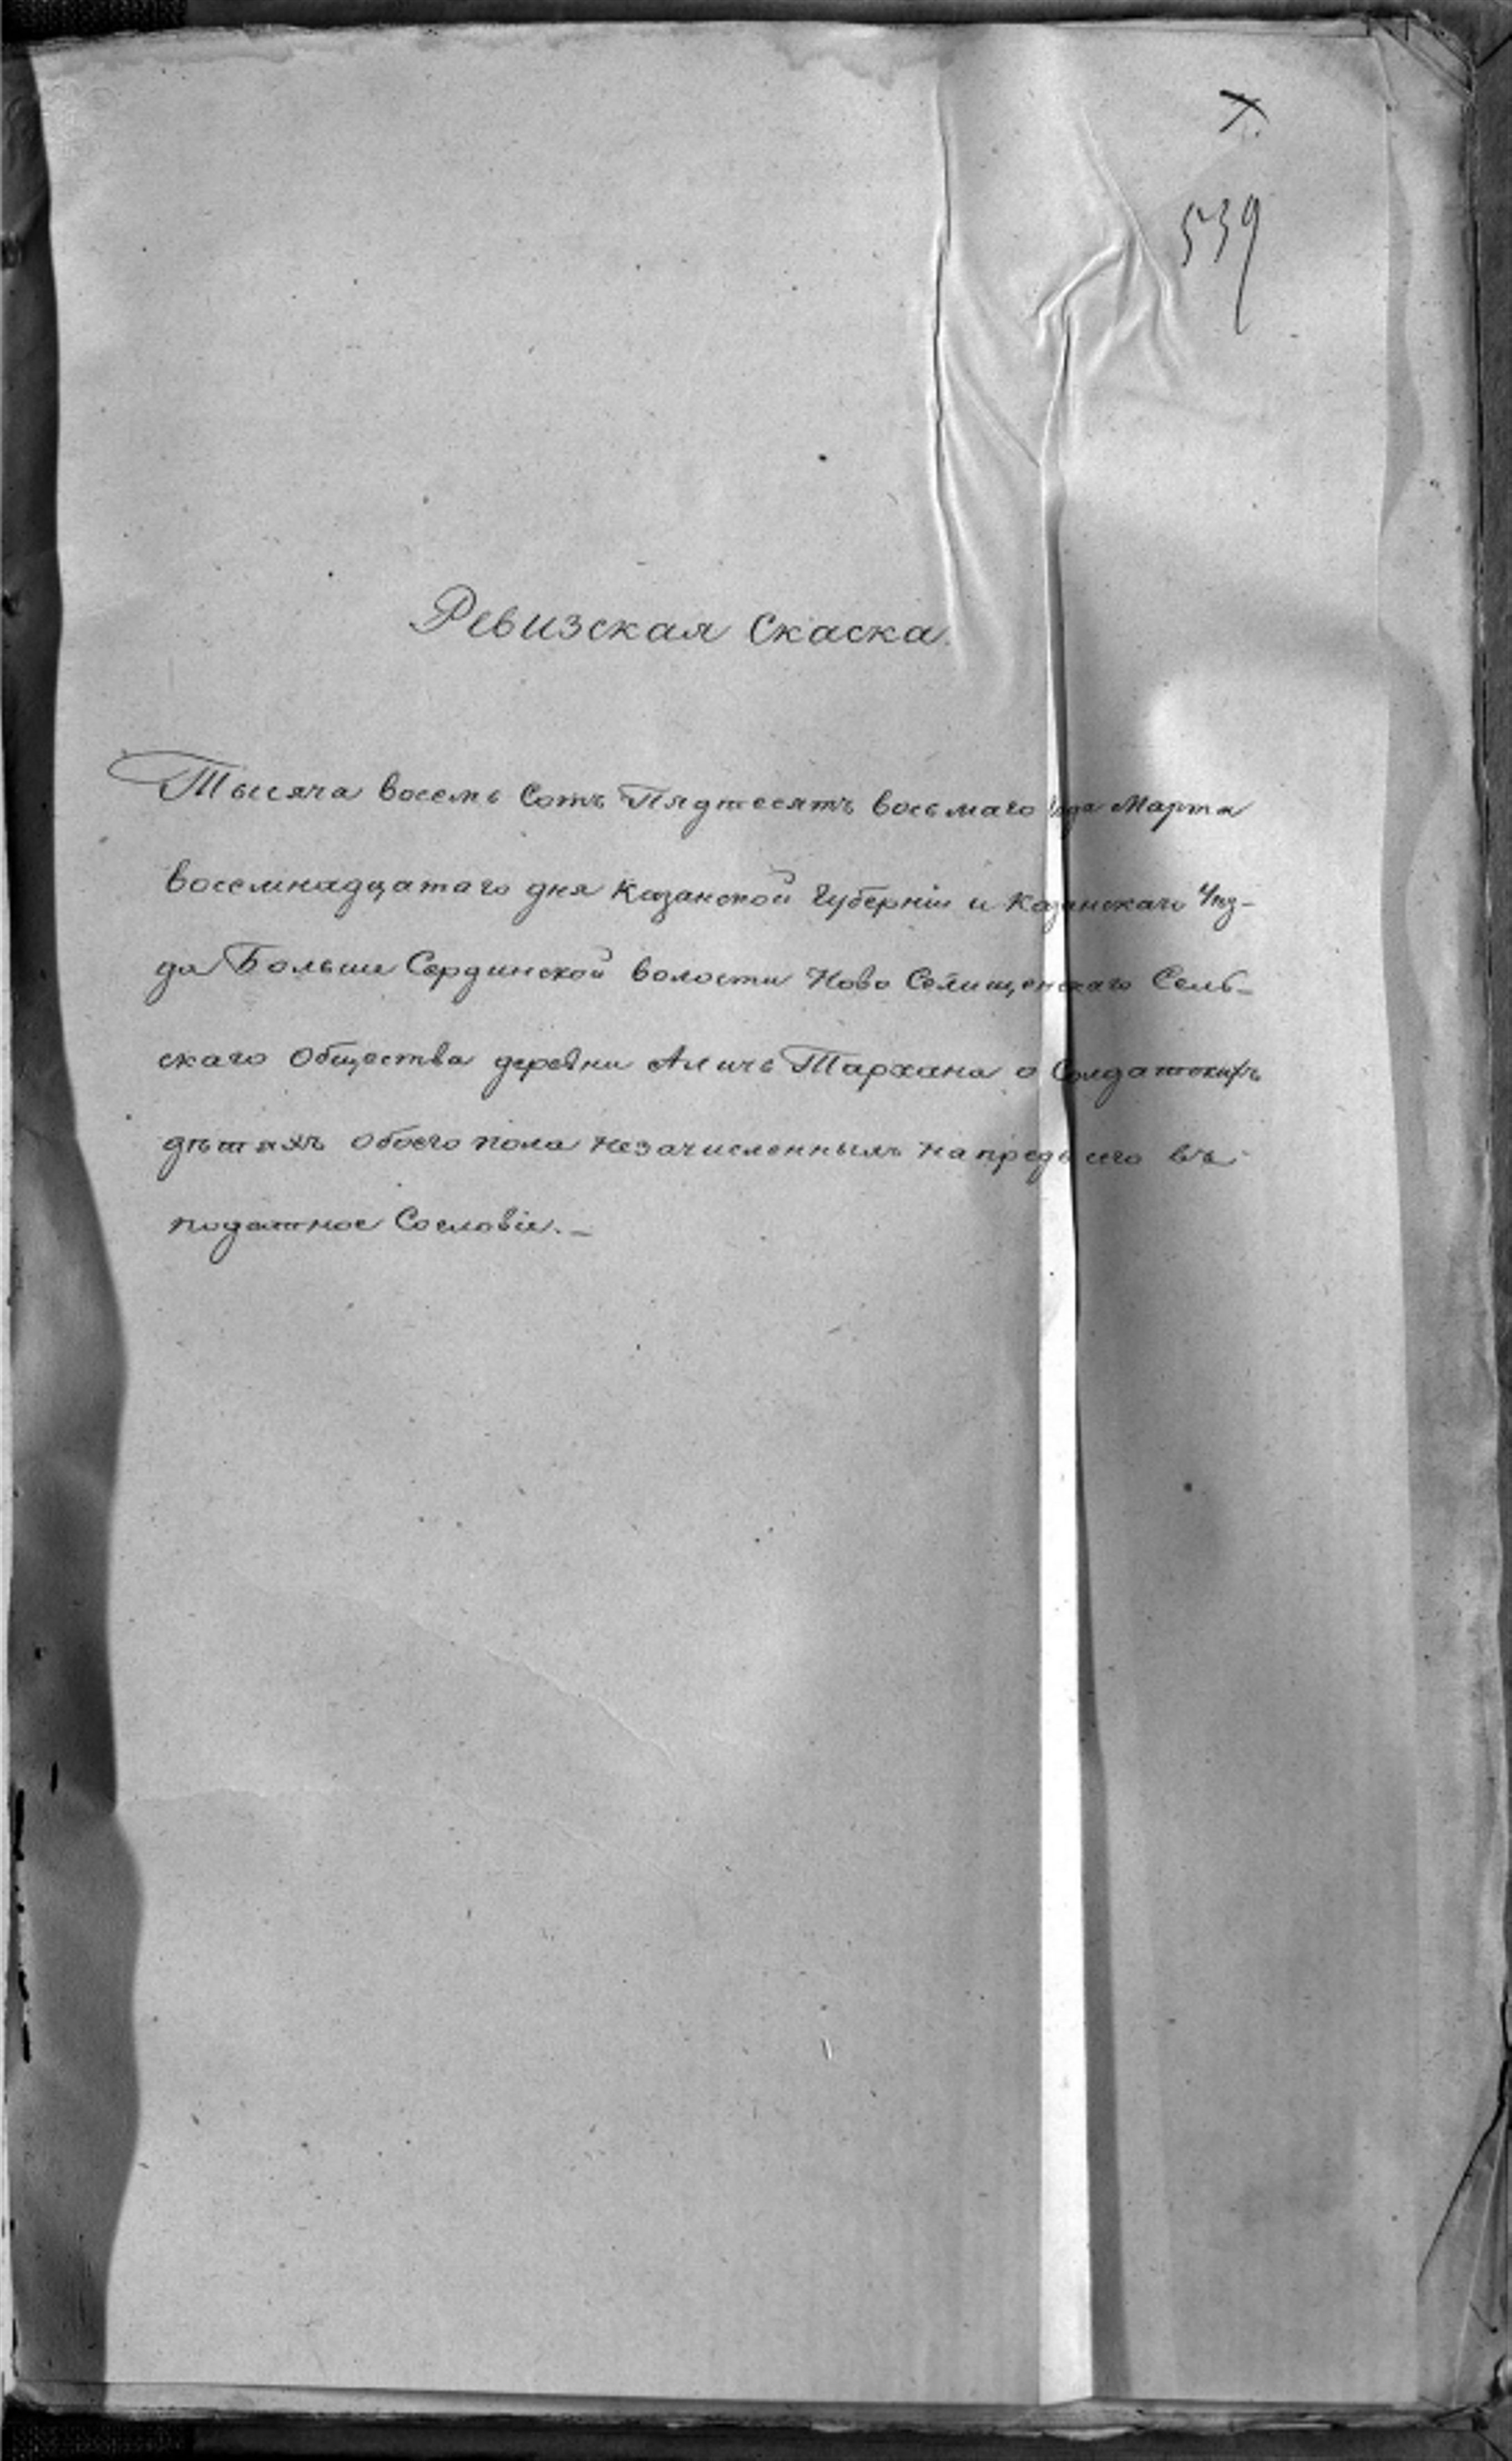 539
Ревизская Скаска.
Тысяча восемь Сотъ Пядтесятъ восьмаго года Марта
восемнадцатаго дня Казанской Губерніи и Казанскаго Уѣз-
да Больше Сердинской волости Ново Селищенскаго Сель-
скаго Общества деревни Аличь Тархана о Солдатскихъ
дѣтяхъ обоего пола незачисленныхъ напредь сего въ
податное Сословіе.-